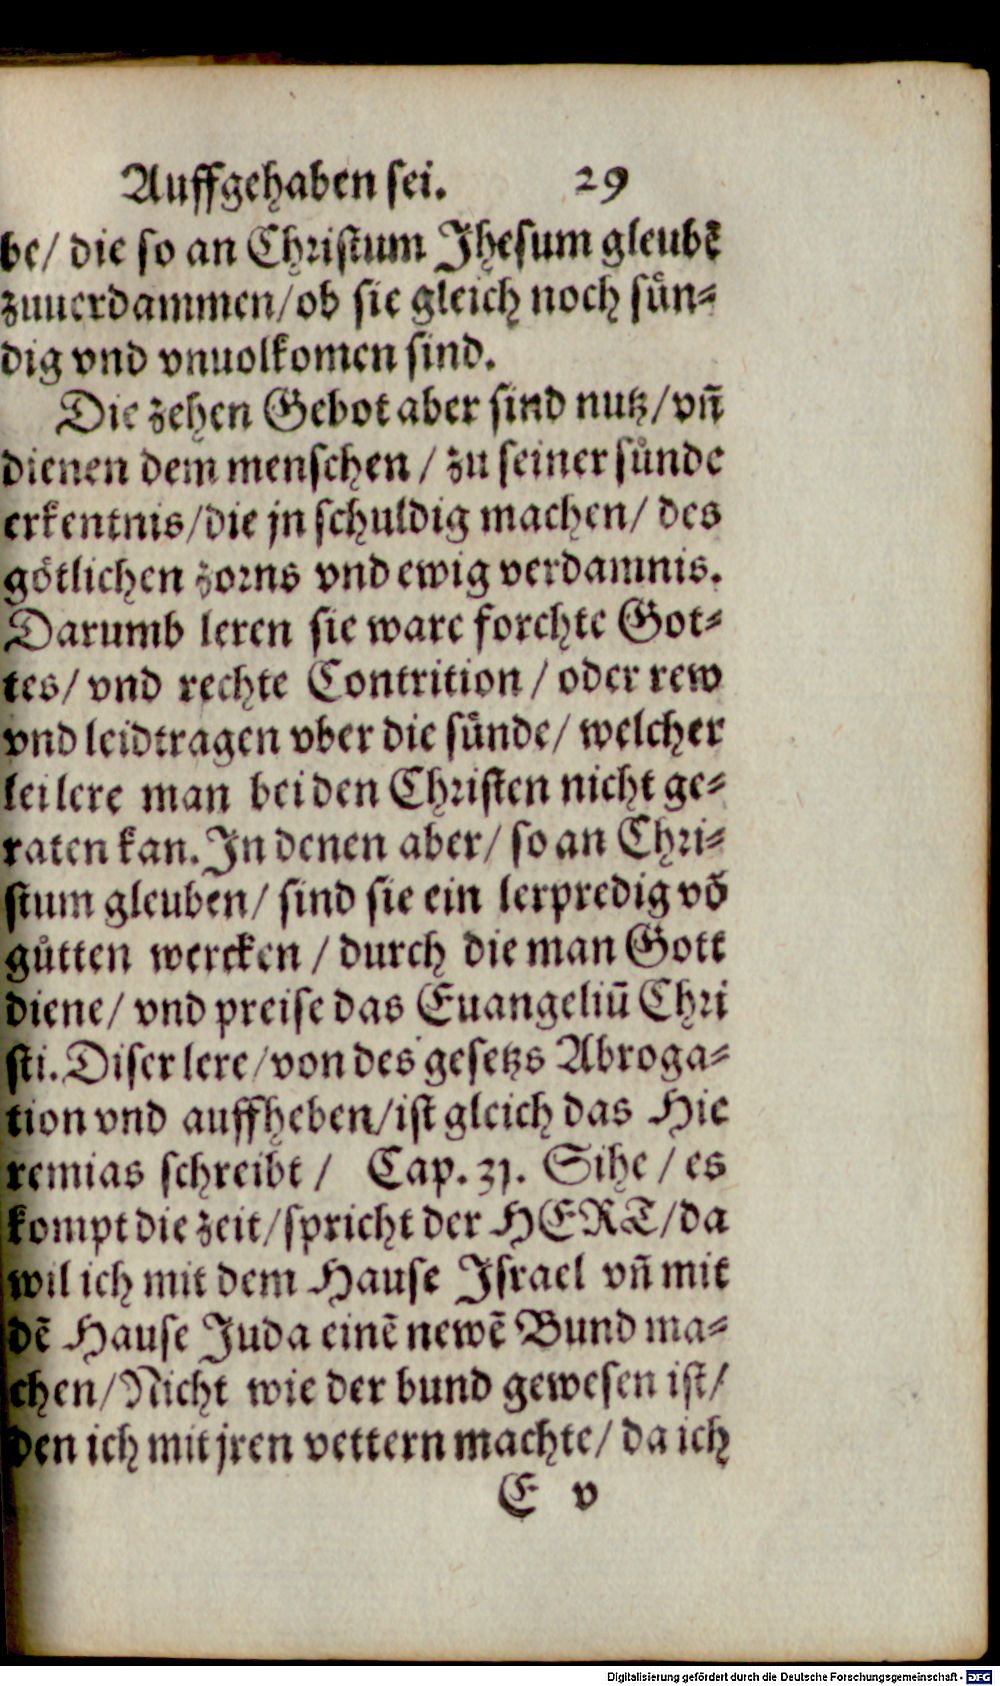 Auffgehaben sei. 29
be/ die so an Christum Jhesum gleubē
zuuerdammen/ob sie gleich noch sün⸗
dig vnd vnuolkomen sind.
Die zehen Gebot aber sind nutz/vn̄
dienen dem menschen / zu seiner sünde
erkentnis/die jn schuldig machen/ des
götlichen zorns vnd ewig verdamnis.
Darumb leren sie ware forchte Got⸗
tes/ vnd rechte Contrition / oder rew
vnd leidtragen vber die sünde/ welcher
lei lere man bei den Christen nicht ge⸗
raten kan. In denen aber/ so an Chri⸗
stum gleuben/ sind sie ein lerpredig vō
gůtten wercken / durch die man Gott
diene/ vnd preise das Euangeliū Chri
sti. Diser lere/von des gesetzs Abroga⸗
tion vnd auffheben/ist gleich das Hie
remias schreibt / Cap. 31. Sihe / es
kompt die zeit/spricht der HERR/da
wil ich mit dem Hause Israel vn̄ mit
dē Hause Juda einē newē Bund ma⸗
chen/Nicht wie der bund gewesen ist/
den ich mit jren vettern machte/ da ich
E v
Digitalisierung gefördert durch die Deutsche Forschungsgemeinschaft - DFG